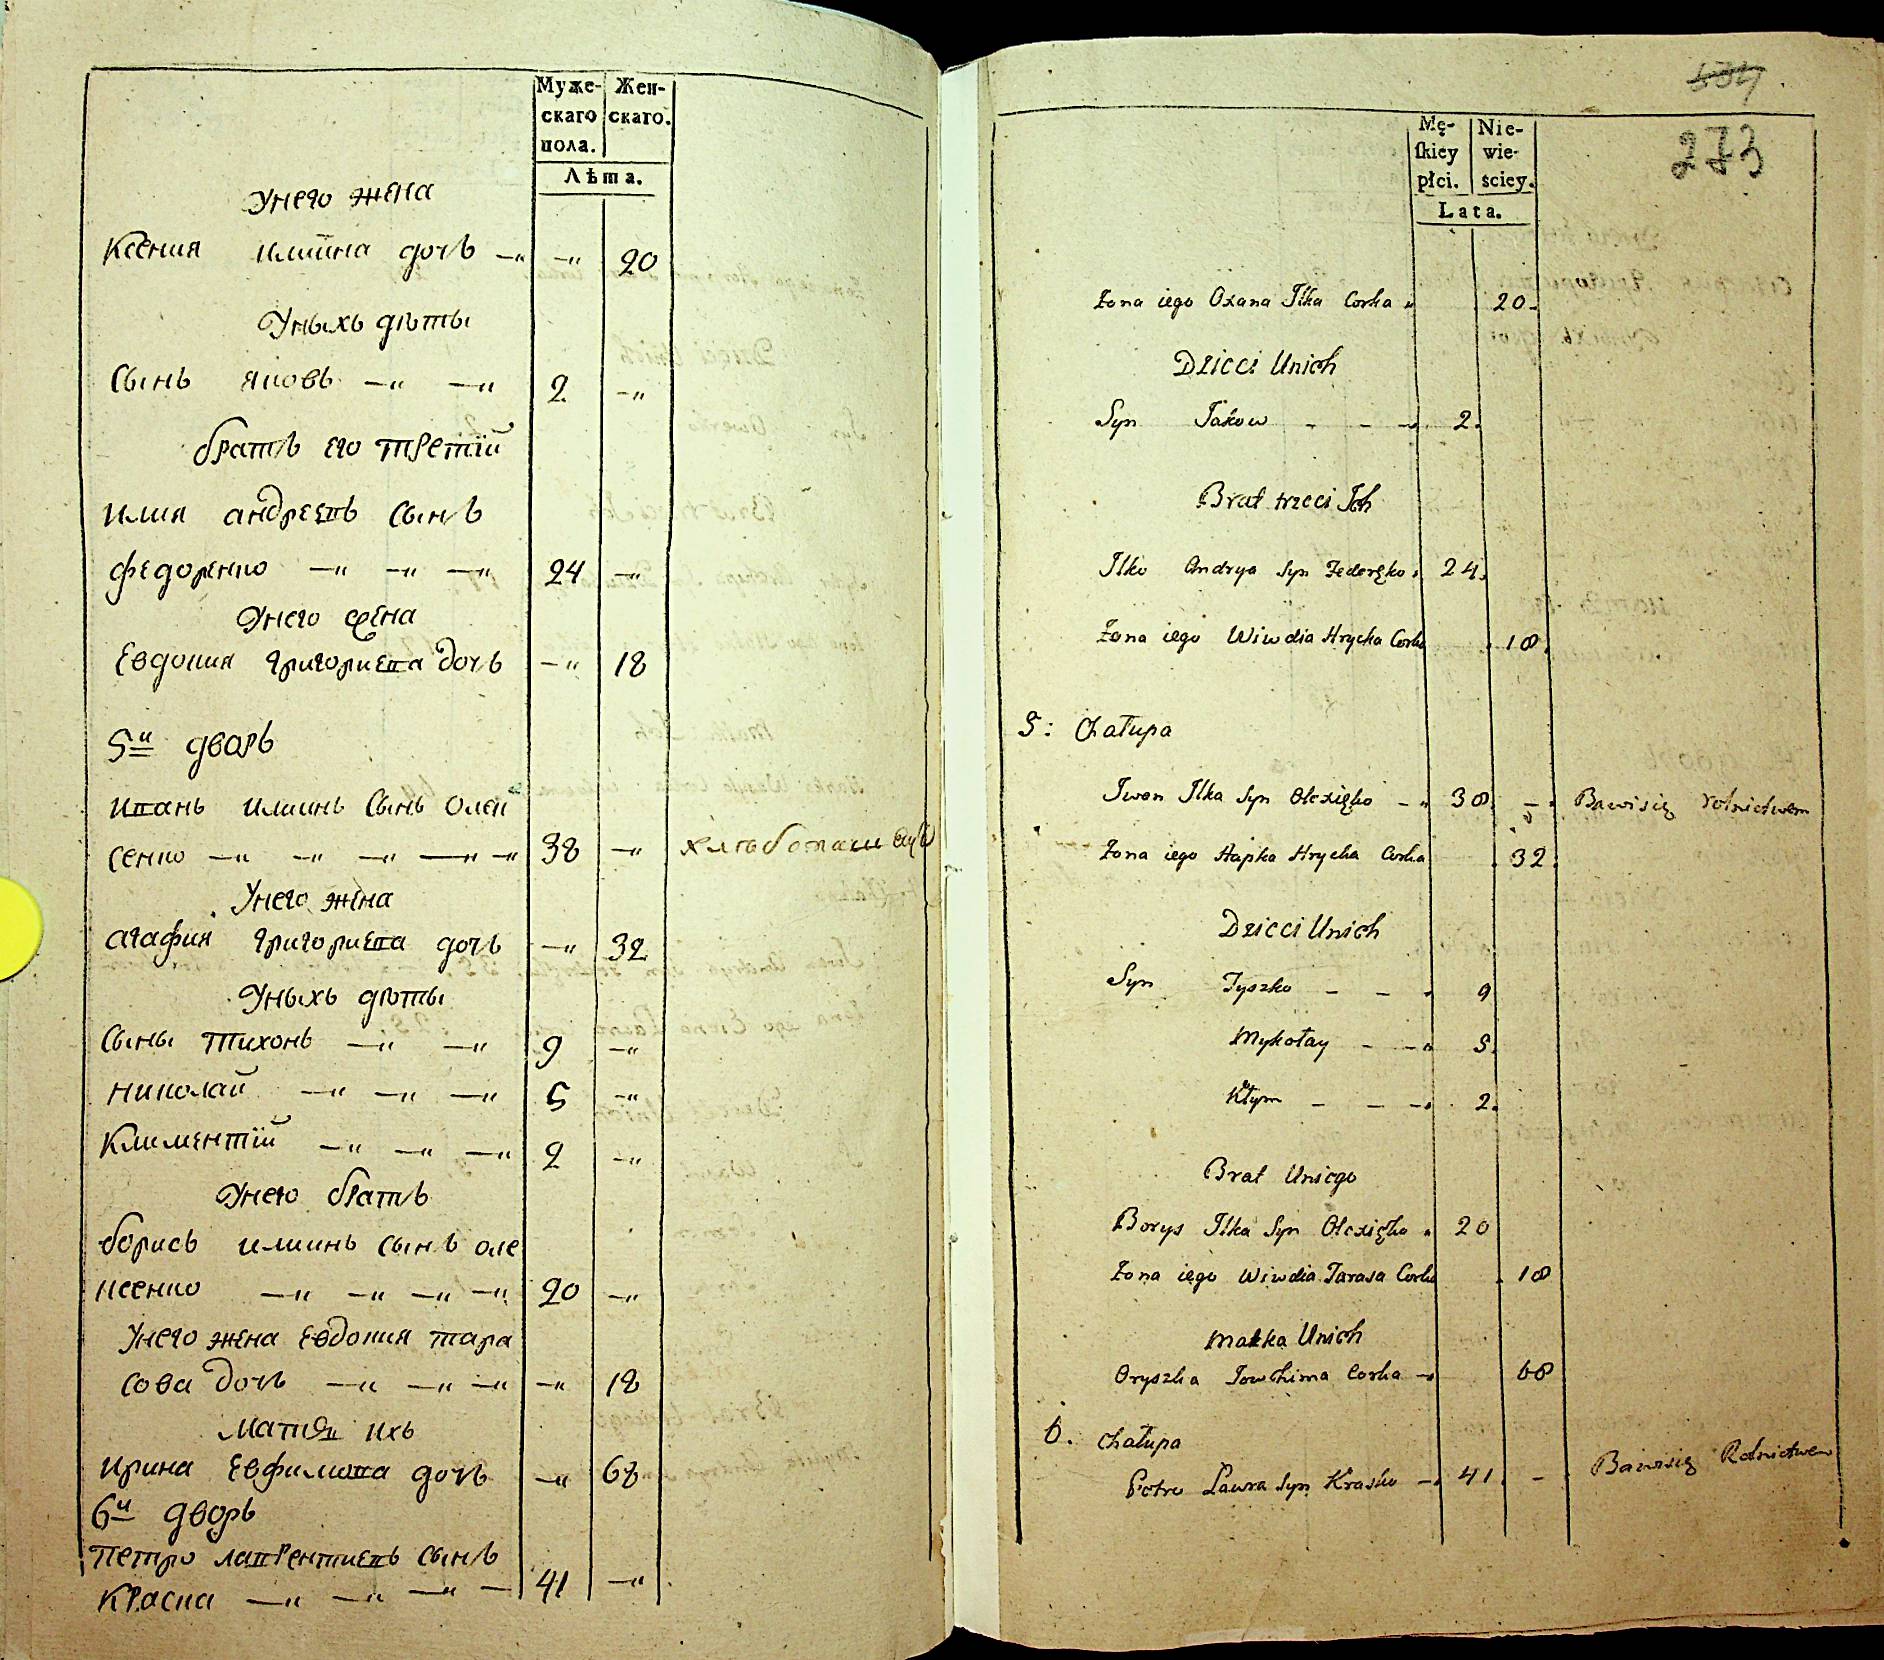 Муже-
скаго
пола.
Жен-
скаго.
Лѣта.
Унего жена
Ксения илиина дочь —„ —„ 20
Уныхъ дѣты
Сынъ яковъ —„ —„ 2 —„
братъ его третій
илия андреевъ сынъ
федоренко —„ —„ —„ 24 —„
Унего жена
Евдокия григориева дочь —„ 18
5й дворъ
иванъ илиинъ сынъ олек
сенко —„ —„ —„ —„ —„ 38 —„
Унего жена
агафия григориева дочь —„ 32
Уныхъ дѣты
Сыны тихонъ —„ —„ 9 —„
николай —„ —„ —„ 5 —„
Климентій —„ —„ —„ 2 —„
Унего братъ
борисъ илиинъ сынъ оле
ксенко —„ —„ —„ —„ 20 —„
Унего жена Евдокия тара
сова дочь —„ —„ —„ —„ 18
мать ихъ
ирина Евфимова дочь —„ 68
6й дворъ
петро лаврентиевъ сынъ
Краска —„ —„ —„ — 41 —„
504
273
Mę-
skiey
płci.
Nie-
wie-
ściey.
Lata.
Żona iego Oxana Ilka Corka „ 20.
Dzieci Unich
Syn Jakow - - - 2.
Brat trzeci Ich
Ilko Andrya Syn Federęko. 24.
Żona iego Wiwdia Hrycka Corka 18.
5: Chałupa
Iwan Ilka Syn Ołexięko - „ 38. - . Bawisię rolnictwem
Żona iego Hapka Hrycka Corka 32.
Dzieci Unich
Syn Tyszko - - . 9
Mykołay - - „ 5.
Kłym - - -. 2.
Brat Uniego
Borys Ilka Syn Ołexięko „ 20
Żona iego Wiwdia Tarasa Corka 18
Matka Unich
Oryszka Jowchima Corka -„ 68
6. Chałupa
Petro Ławra Syn Krasko -. 41. - Bawisię Rolnictwem